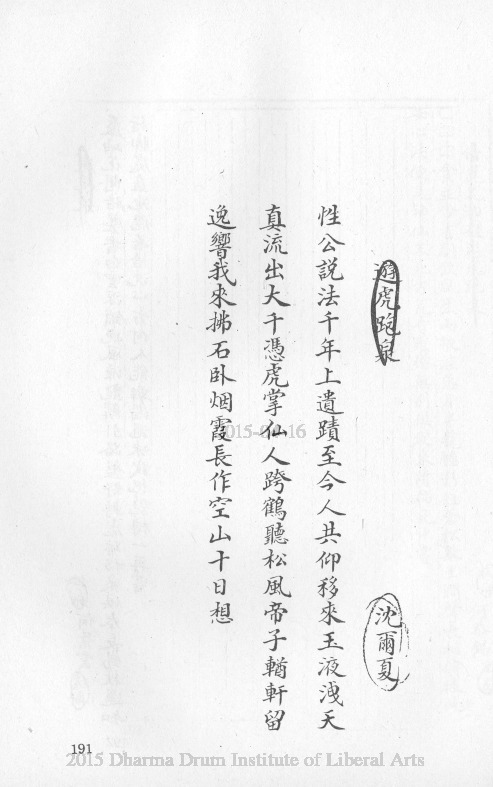 遊虎跑泉
沈爾夏
性公說法千年上遺蹟至今人共仰移來玉液洩天
真流出大千憑虎掌仙人跨鶴聽松風帝子輶軒留
逸響我來拂石臥烟霞長作空山十日想
191
2015 Dharma Drum Institute of Liberal Arts